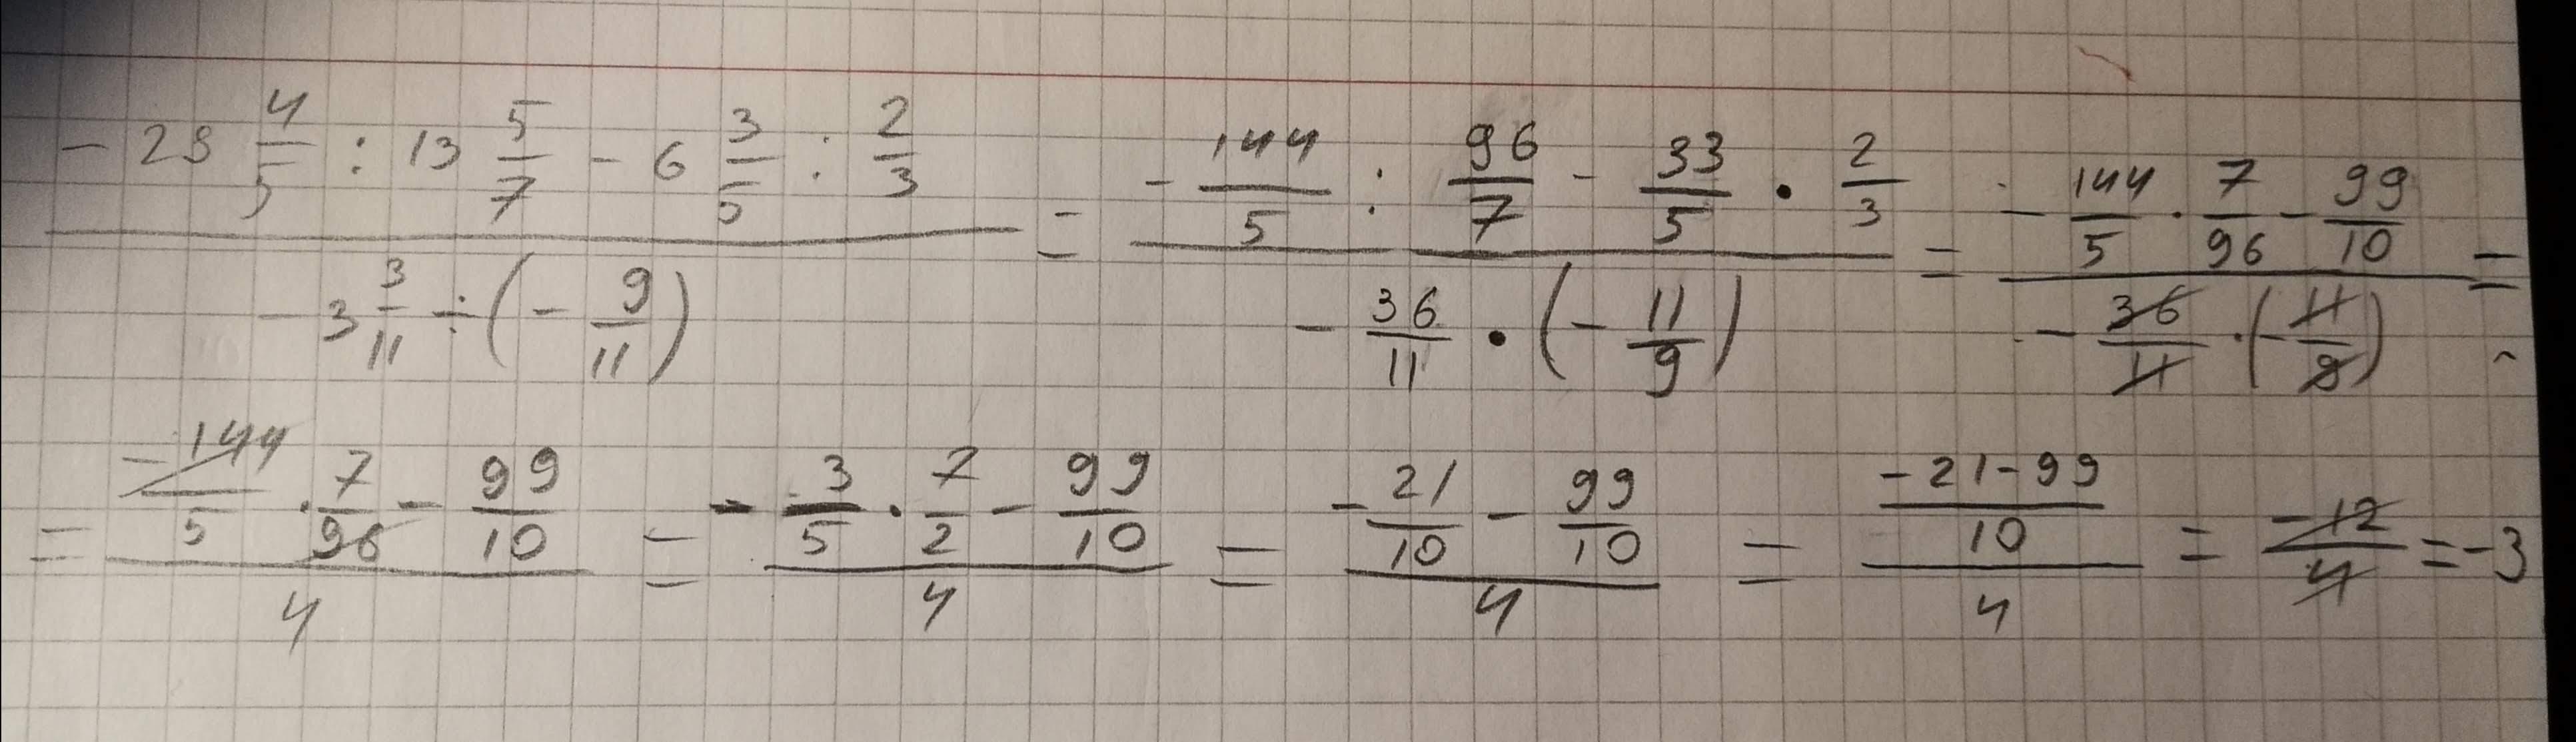 (-28 4/5 : 13 5/7 - 6 3/5 : 2/3) / (-3 3/11 ÷ (- 9/11)) = (- 144/5 : 96/7 - 33/5 · 2/3) / (- 36/11 · (- 11/9)) = (- 144/5 · 7/96 - 99/10) / (- 36/11 · (- 11/9)) =
= (-144/5 · 7/96 - 99/10) / 4 = (- 3/5 · 7/2 - 99/10) / 4 = (- 21/10 - 99/10) / 4 = ((-21-99)/10) / 4 = -12/4 = -3